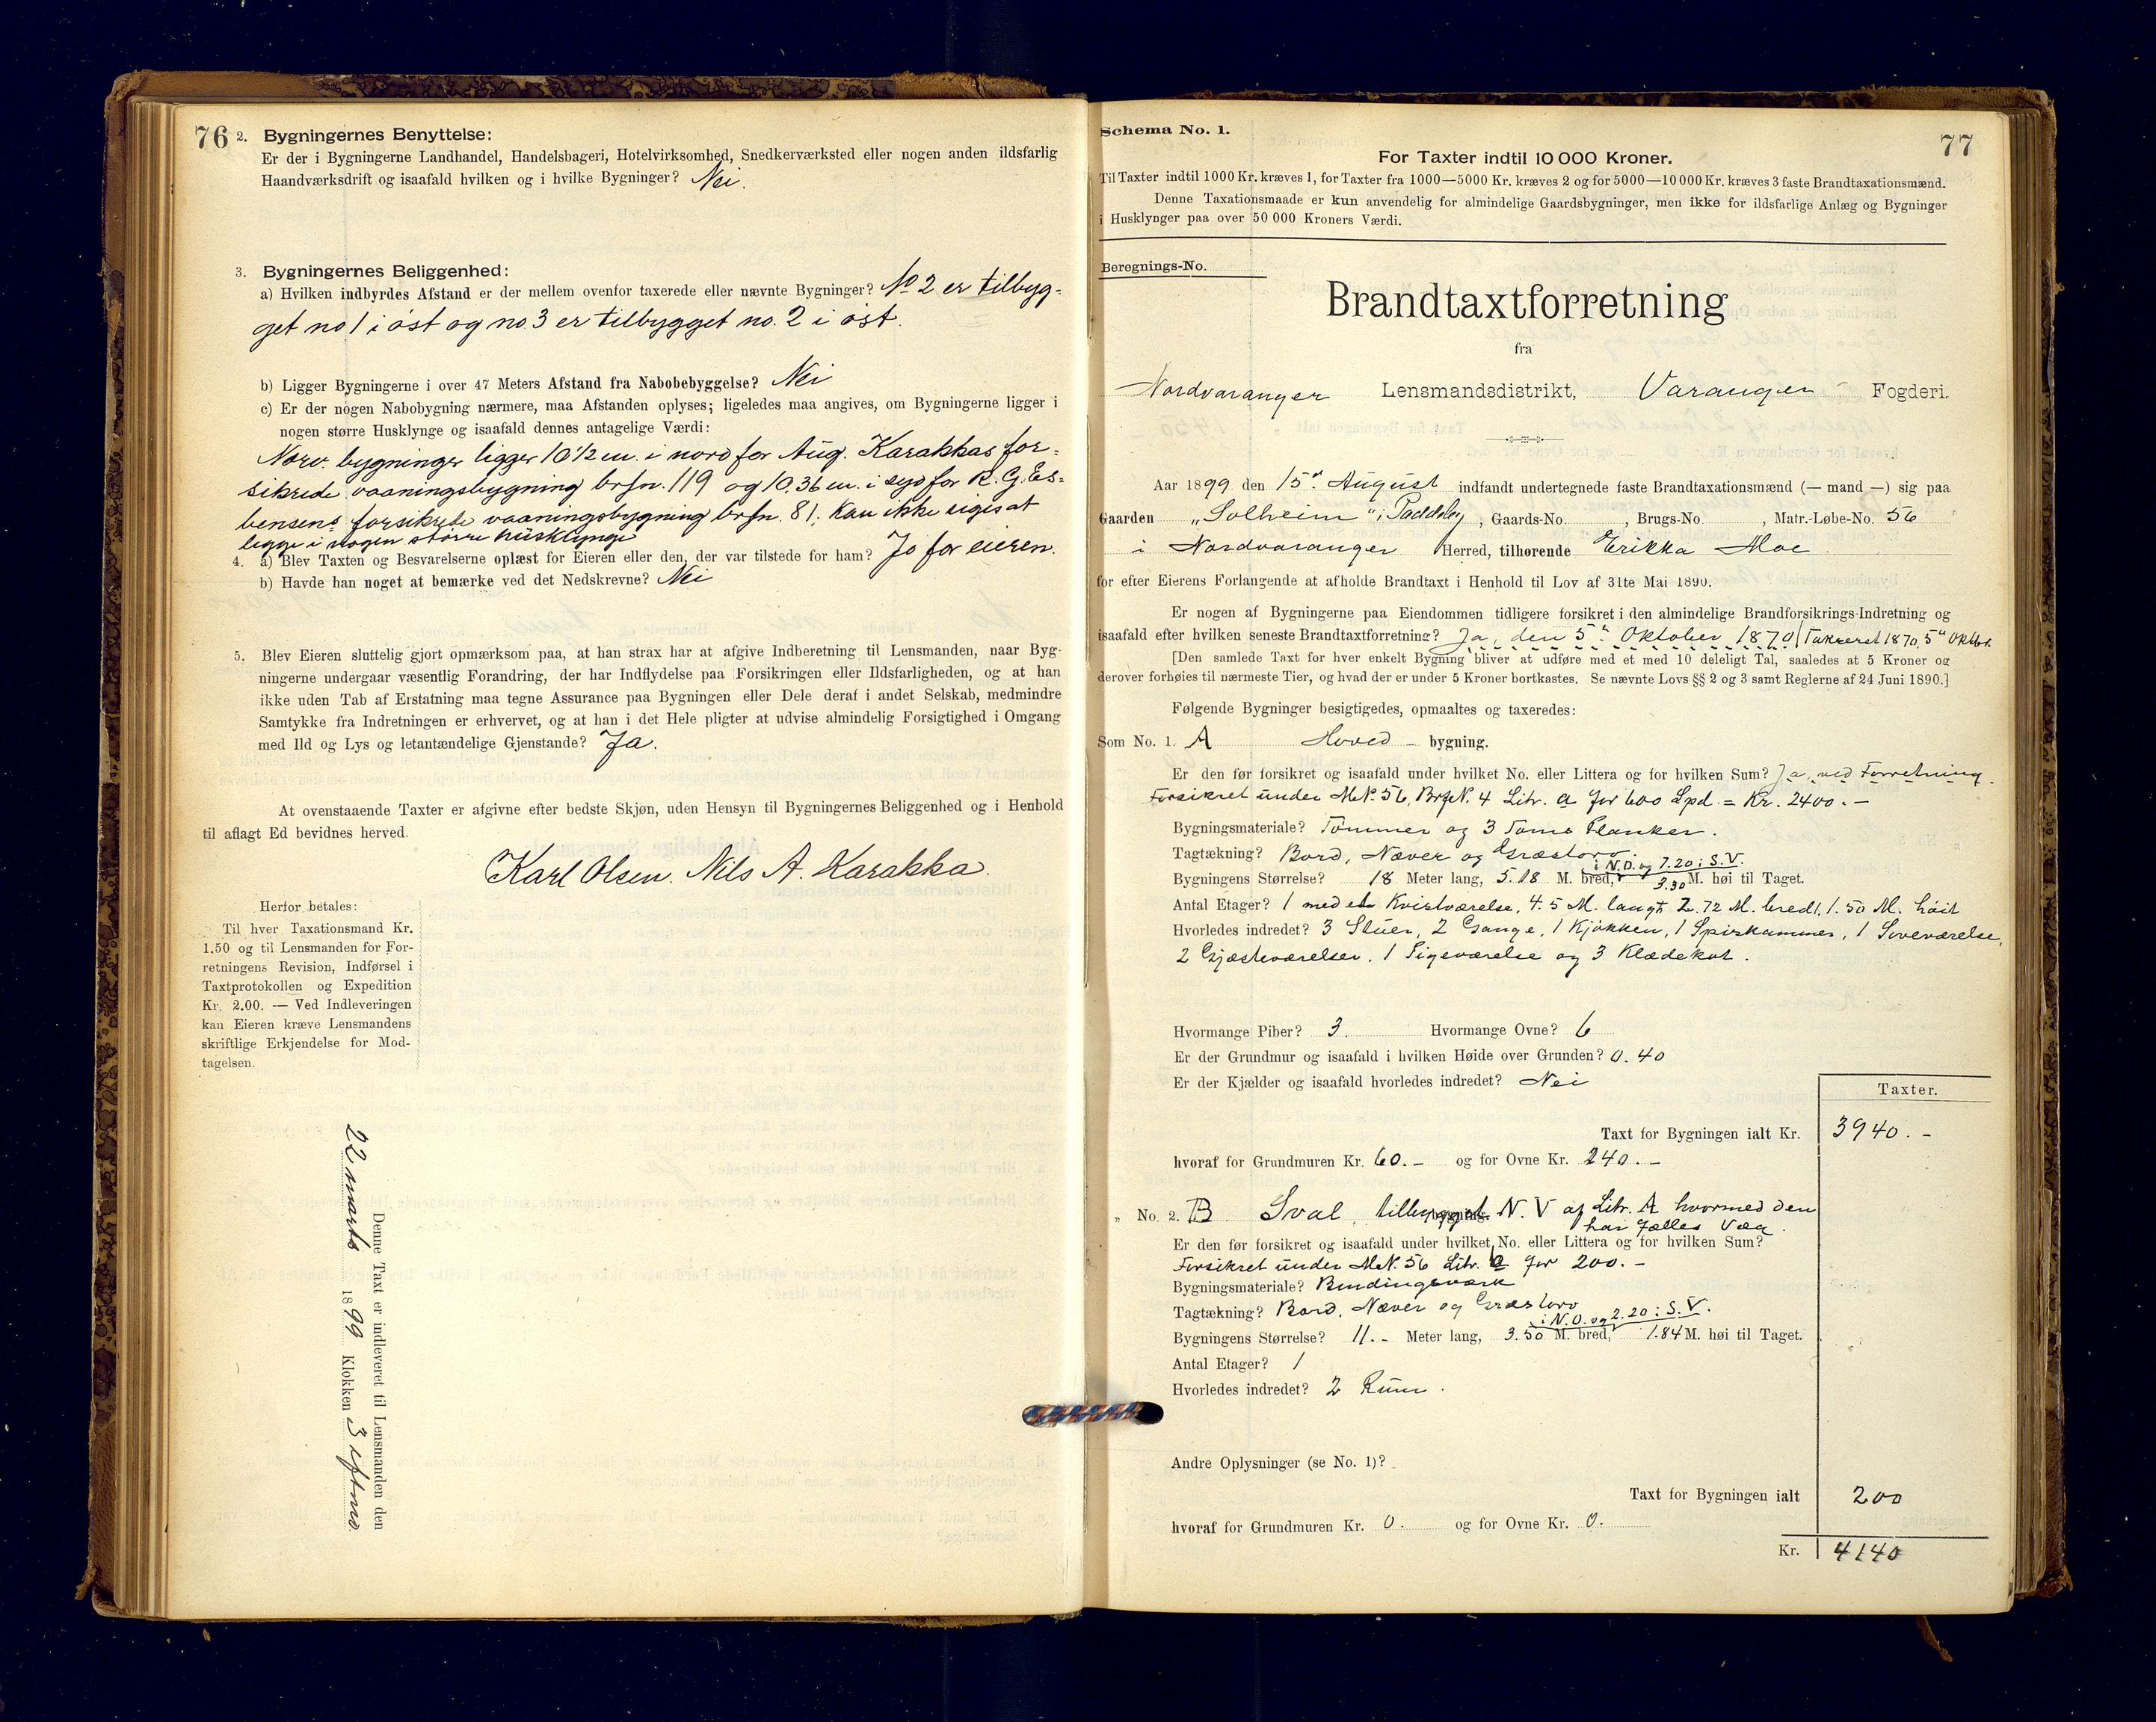 76
2. Bygningernes Benyttelse:
Er der i Bygningerne Landhandel, Handelsbageri, Hotelvirksomhed, Snedkerværksted eller nogen anden ildsfarlig
Haandværksdrift og isaafald hvilken og i hvilke Bygninger? Nei.
3. Bygningernes Beliggenhed:
a) Hvilken indbyrdes Afstand er der mellem ovenfor taxerede eller nævnte Bygninger? No 2 er tilbyg-
get no 1 i øst og no 3 er tilbygget no. 2 i øst.
b) Ligger Bygningerne i over 47 Meters Afstand fra Nabobebyggelse? Nei
c) Er der nogen Nabobygning nærmere, maa Afstanden oplyses; ligeledes maa angives, om Bygningerne ligger i
nogen større Husklynge og isaafald dennes antagelige Værdi:
Nærv. bygninger ligger 10 1/2 m. i nord for Aug. Karakkas for-
sikrede vaaningsbygning brfn. 119 og 10.36 m. i syd for R. G. Es-
bensens forsikrede vaaningsbygning brfn. 81. Kan ikke siges at
ligge i nogen større husklynge
4. a) Blev Taxten og Besvarelserne oplæst for Eieren eller den, der var tilstede for ham? Jo for eieren.
b) Havde han noget at bemærke ved det Nedskrevne? Nei
5. Blev Eieren sluttelig gjort opmærksom paa, at han strax har at afgive Indberetning til Lensmanden, naar Byg-
ningerne undergaar væsentlig Forandring, der har Indflydelse paa Forsikringen eller Ildsfarligheden, og at han
ikke uden Tab af Erstatning maa tegne Assurance paa Bygningen eller Dele deraf i andet Selskab, medmindre
Samtykke fra Indretningen er erhvervet, og at han i det Hele pligter at udvise almindelig Forsigtighed i Omgang
med Ild og Lys og letantændelige Gjenstande? Ja.
At ovenstaaende Taxter er afgivne efter bedste Skjøn, uden Hensyn til Bygningernes Beliggenhed og i Henhold
til aflagt Ed bevidnes herved.
Karl Olsen. Nils A. Karakka.
Herfor betales:
Til hver Taxationsmand Kr.
1.50 og til Lensmanden for For-
retningens Revision, Indførsel i
Taxtprotokollen og Expedition
Kr. 2.00. — Ved Indleveringen
kan Eieren kræve Lensmandens
skriftlige Erkjendelse for Mod-
tagelsen.
Denne Taxt er indleveret til Lensmanden den
22 marts 1899 Klokken 3 eftmd.
Schema No. 1.
77
For Taxter indtil 10 000 Kroner.
Til Taxter indtil 1000 Kr. kræves 1, for Taxter fra 1000—5000 Kr. kræves 2 og for 5000—10 000 Kr. kræves 3 faste Brandtaxationsmænd.
Denne Taxationsmaade er kun anvendelig for almindelige Gaardsbygninger, men ikke for ildsfarlige Anlæg og Bygninger
i Husklynger paa over 50 000 Kroners Værdi.
Beregnings-No.
Brandtaxtforretning
fra
Nordvaranger Lensmandsdistrikt, Varanger Fogderi.
Aar 1899 den 15de August indfandt undertegnede faste Brandtaxationsmænd (— mand —) sig paa
Gaarden „Solheim" i Paddeby, Gaards-No. , Brugs-No. , Matr.-Løbe-No. 56
i Nordvaranger Herred, tilhørende Erikka Moe
for efter Eierens Forlangende at afholde Brandtaxt i Henhold til Lov af 31te Mai 1890.
Er nogen af Bygningerne paa Eiendommen tidligere forsikret i den almindelige Brandforsikrings-Indretning og
isaafald efter hvilken seneste Brandtaxtforretning? Ja, den 5te Oktober 1870 (Takseret 1870, 5te Oktbr.
[Den samlede Taxt for hver enkelt Bygning bliver at udføre med et med 10 deleligt Tal, saaledes at 5 Kroner og
derover forhøies til nærmeste Tier, og hvad der er under 5 Kroner bortkastes. Se nævnte Lovs §§ 2 og 3 samt Reglerne af 24 Juni 1890.]
Følgende Bygninger besigtigedes, opmaaltes og taxeredes:
Som No. 1. A Hoved - bygning.
Er den før forsikret og isaafald under hvilket No. eller Littera og for hvilken Sum? Ja, ved Forretning.
Forsikret under M.N. 56, Brf.N. 4 Litr. a for 600 Spd. = Kr. 2400.-
Bygningsmateriale? Tømmer og 3 Toms Planker.
Tagtækning? Bord, Næver og Græstorv.
i N.O. og 7.20 i S.V.
Bygningens Størrelse? 18 Meter lang, 5.18 M. bred, 3.30 M. høi til Taget.
Antal Etager? 1 med et Kvistværelse, 4.5 M. langt 2.72 M. bredt, 1.50 M. høit
Hvorledes indredet? 3 Stuer, 2 Gange, 1 Kjøkken, 1 Spiskammer, 1 Soveværelse,
2 Gjæsteværelser, 1 Pigeværelse og 3 Klædekot.
Hvormange Piber? 3. Hvormange Ovne? 6
Er der Grundmur og isaafald i hvilken Høide over Grunden? 0.40
Er der Kjælder og isaafald hvorledes indredet? Nei
Taxter.
Taxt for Bygningen ialt Kr. 3940.-
hvoraf for Grundmuren Kr. 60.- og for Ovne Kr. 240.-
„ No. 2. B Sval, tilbygget N.V af Litr. A hvormed den
har fælles Væg
Er den før forsikret og isaafald under hvilket No. eller Littera og for hvilken Sum?
Forsikret under M.N. 56 Litr. a for 200.-
Bygningsmateriale? Bindingsværk
Tagtækning? Bord, Næver og Græstorv
i N.O. og 2.20 i S.V.
Bygningens Størrelse? 11.- Meter lang, 3.50 M. bred, 1.84 M. høi til Taget.
Antal Etager? 1
Hvorledes indredet? 2 Rum.
Andre Oplysninger (se No. 1)?
Taxt for Bygningen ialt 200
hvoraf for Grundmuren Kr. 0. og for Ovne Kr. 0.
Kr. 4140